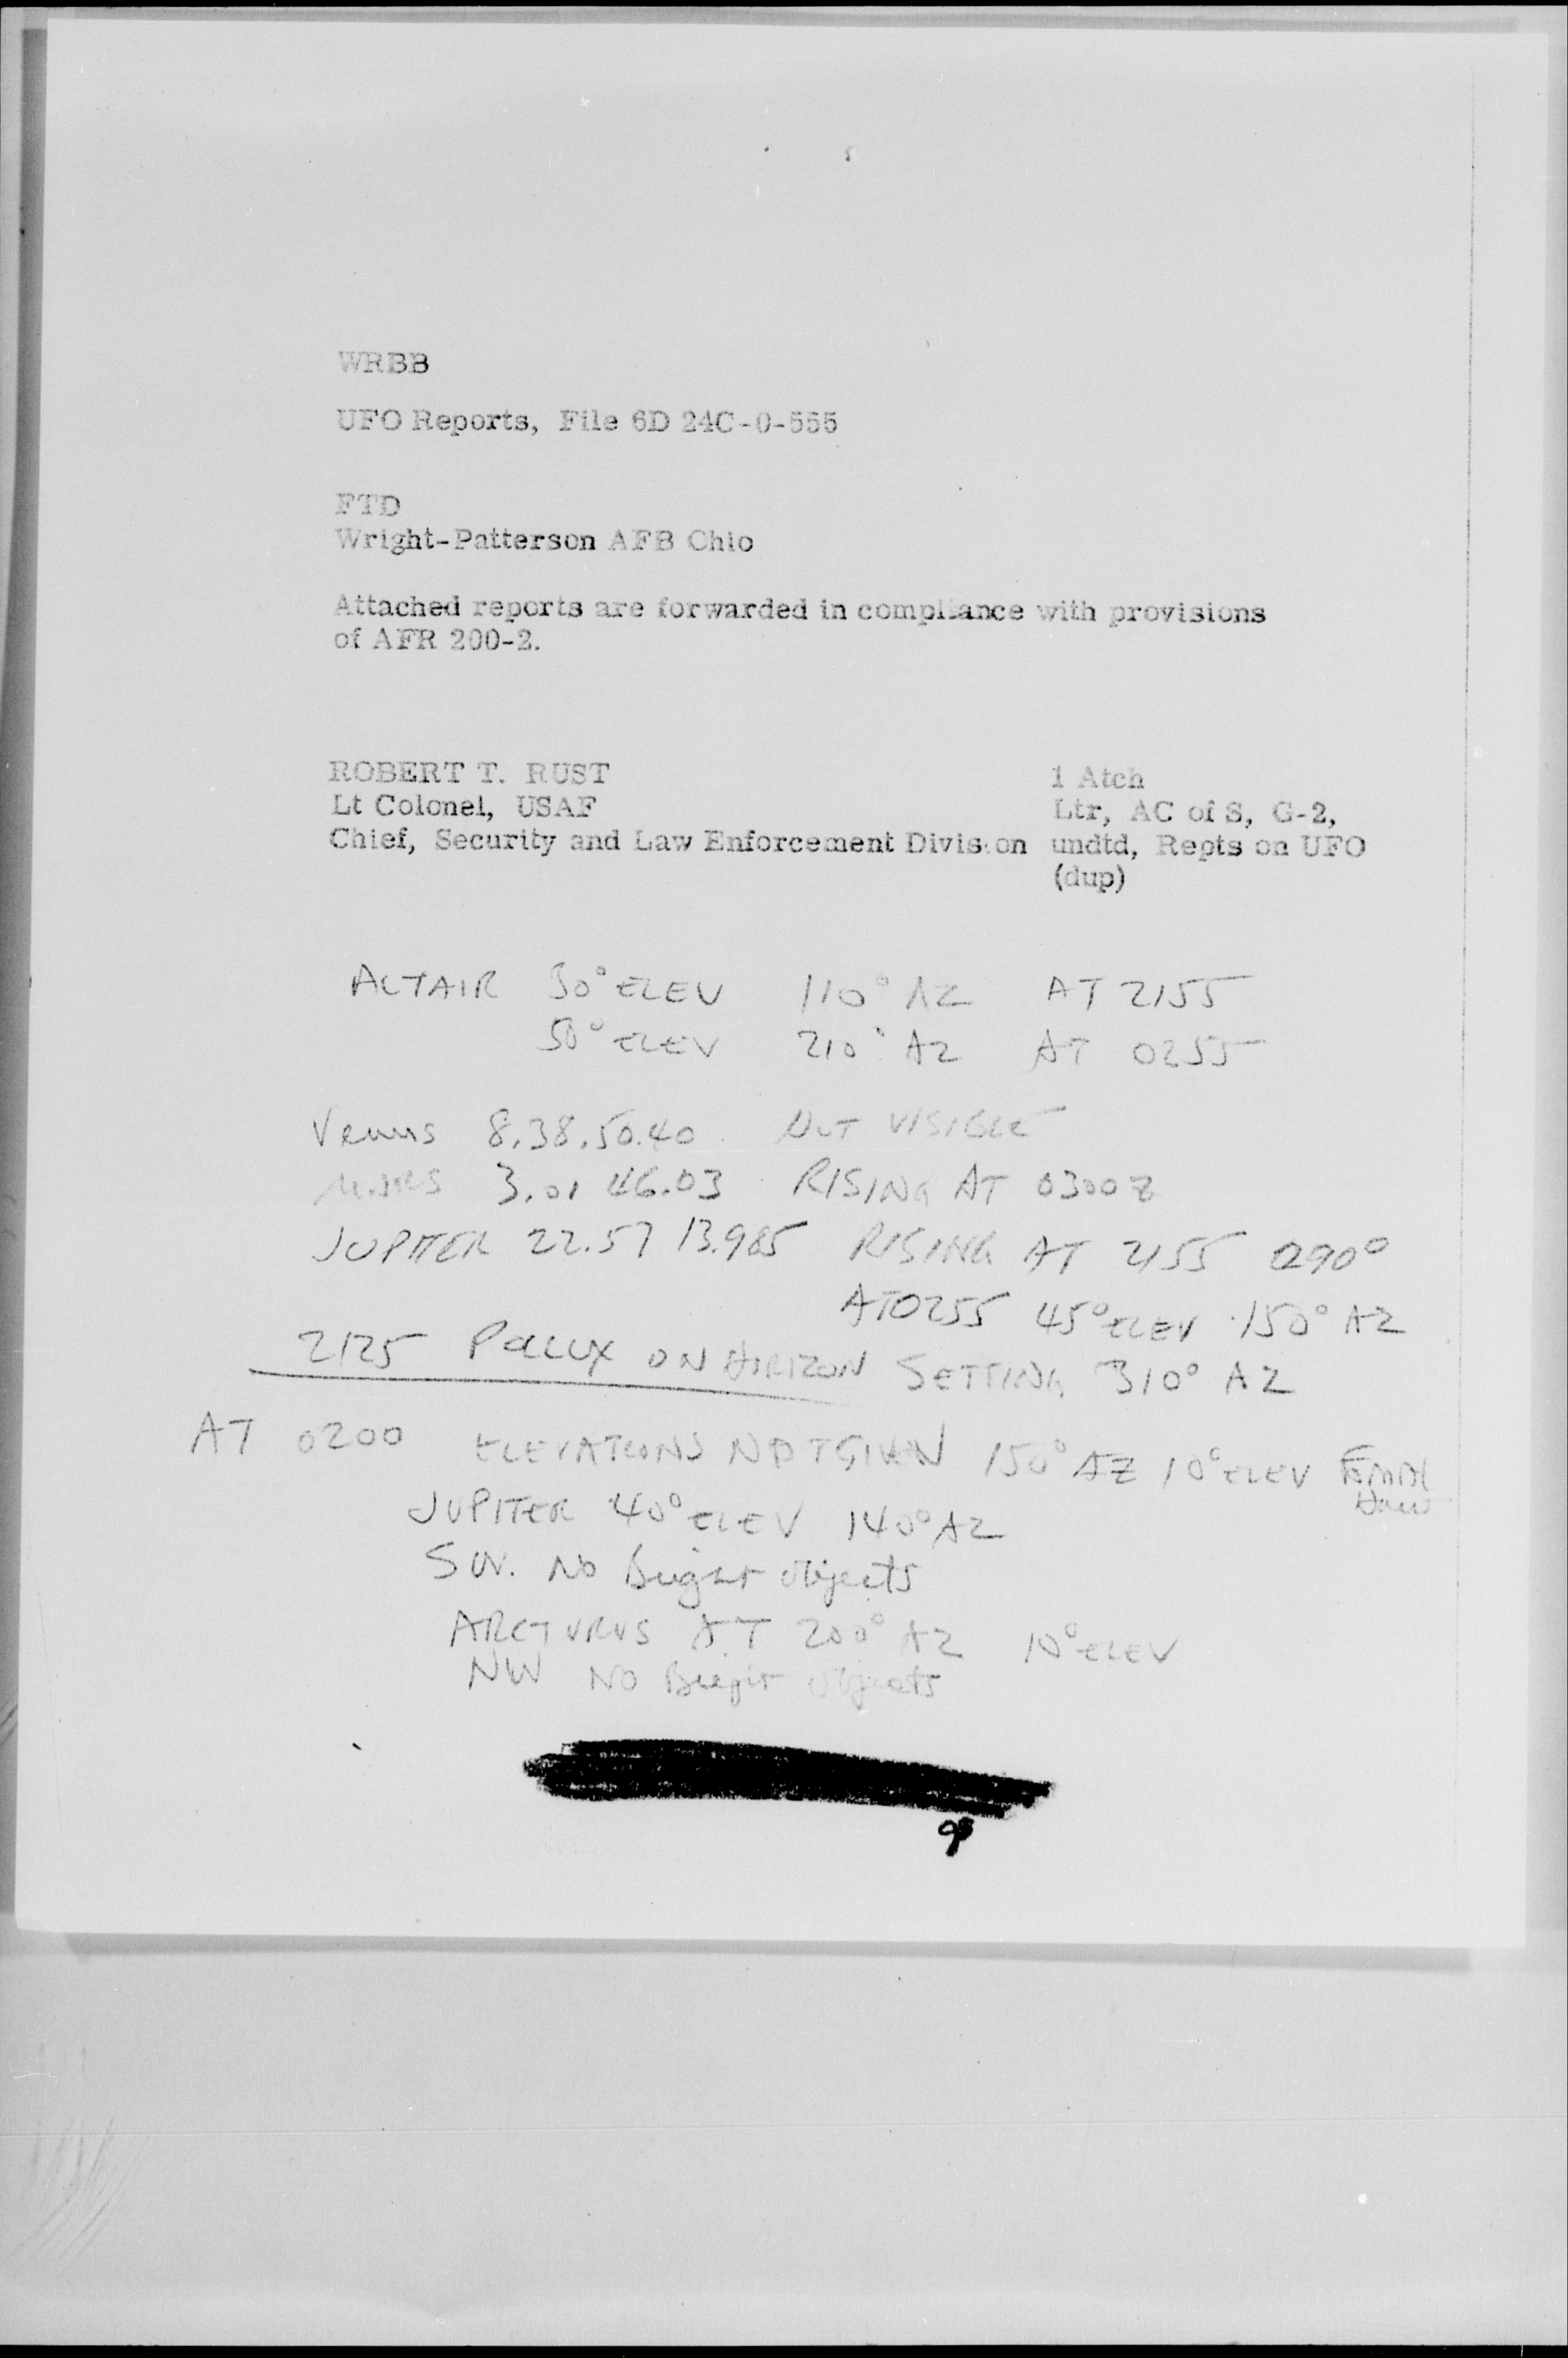 WRBB
UFO Reports, File 6D 24C-0-555
FTD
Wright-Patterson AFB Ohio
Attached reports are forwarded in compliance with provisions
of AFR 200-2.
ROBERT T. RUST
Lt Colonel, USAF
Chief, Security and Law Enforcement Division
1 Atch
Ltr, AC of S, G-2,
undtd, Repts on UFO
(dup)
ALTAIR 30° ELEV 110° AZ AT 2155
50° ELEV 210° AZ AT 0255
Venus 8.38.50.40 NOT VISIBLE
MARS 3.01 46.03 RISING AT 0300Z
JUPITER 22.57 13.985 RISING AT 2155 090°
AT 0255 45° ELEV 150° AZ
2125 POLLUX ON HORIZON SETTING 310° AZ
AT 0200 ELEVATIONS NOT GIVEN 150° AZ 10° ELEV
JUPITER 40° ELEV 140° AZ
SW. No Bright objects
ARCTURUS AT 200° AZ 10° ELEV
NW NO Bright objects